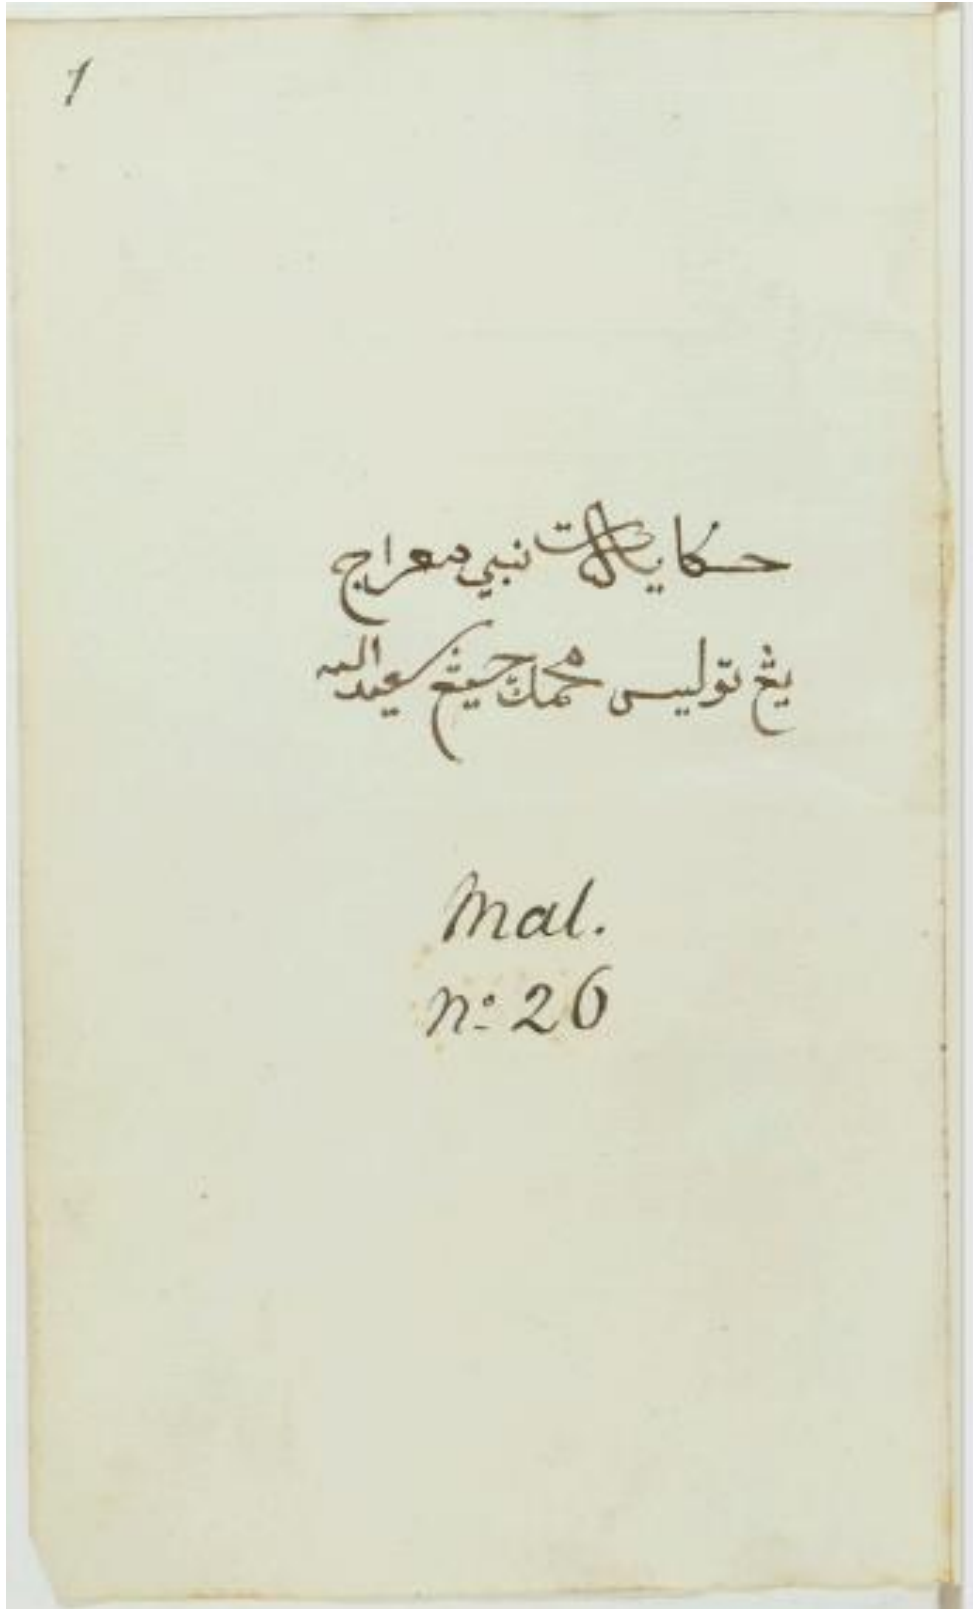 1
حكايات نبي معراج
يڠ توليس محمد چيڠ سعيدالله
Mal.
nº 26